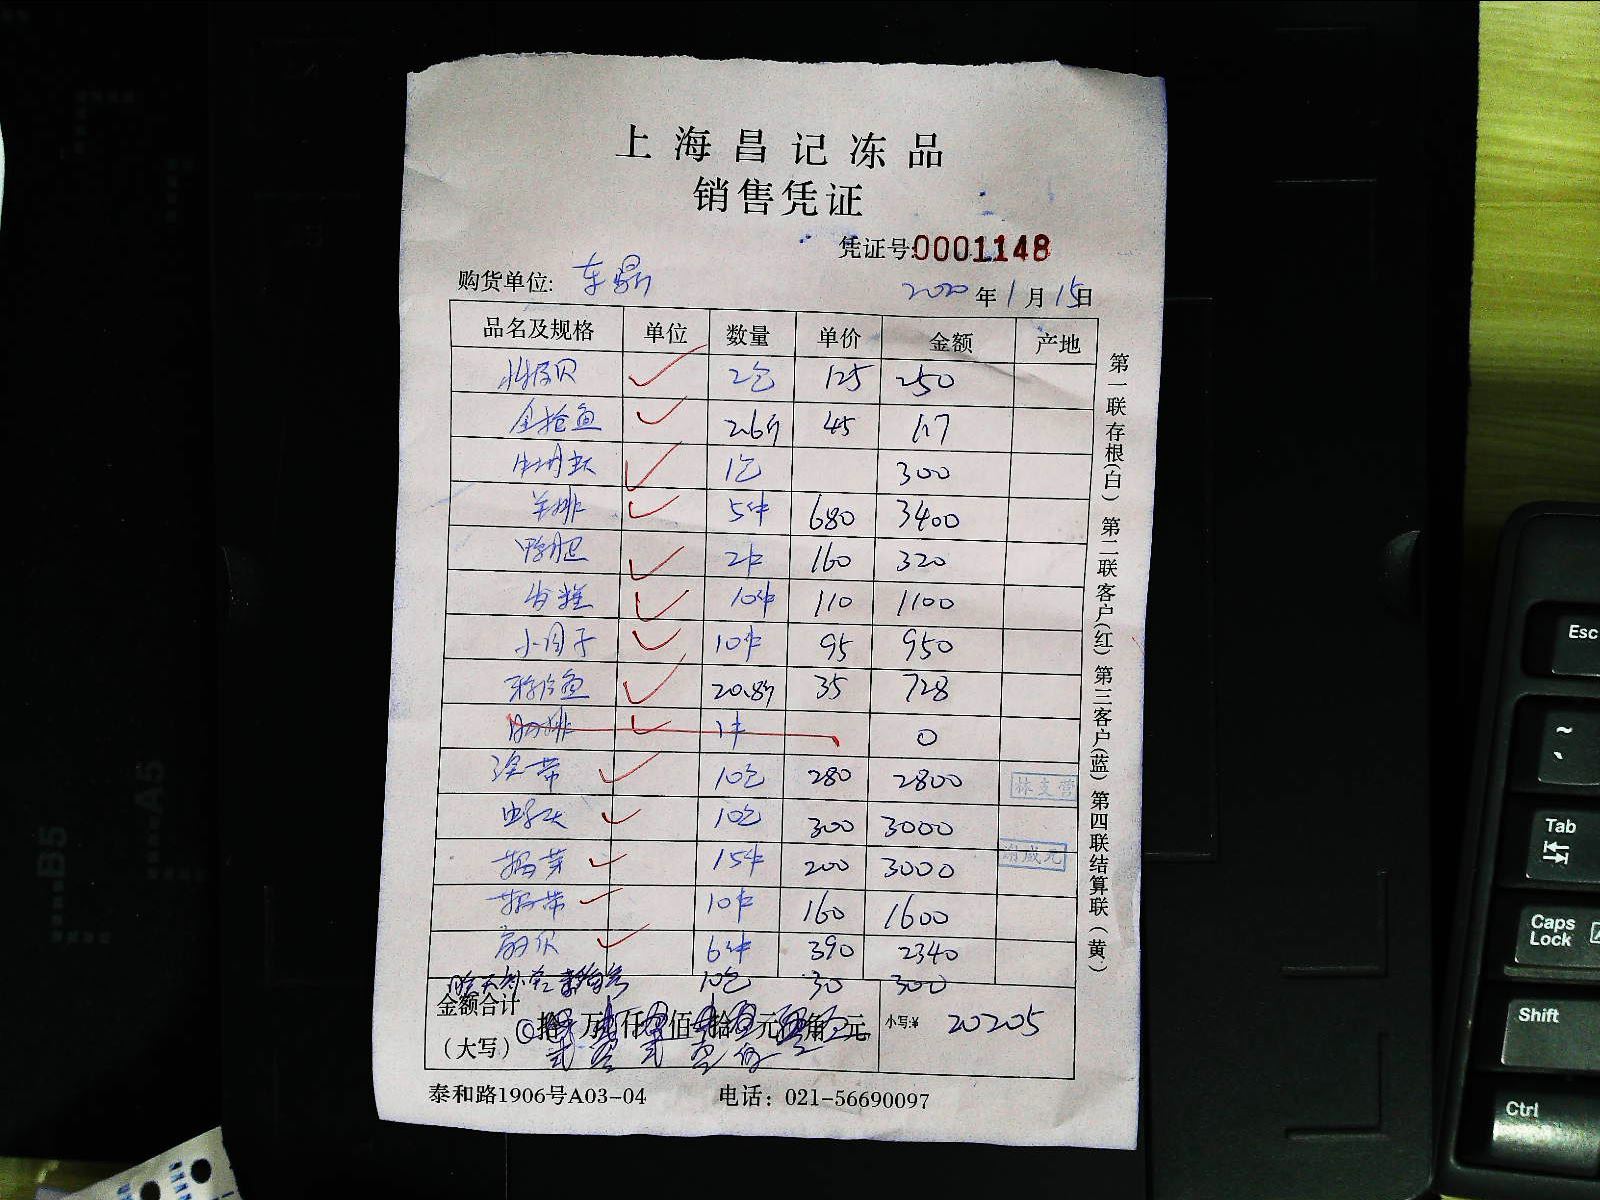 上海昌记冻品
销售凭证
凭证号:0001148
购货单位: 东鼎 2020年1月15日
品名及规格 单位 数量 单价 金额 产地
2包 125 250
金枪鱼 2.6斤 45 117
1包 300
羊排 5件 680 3400
鸭胚 2件 160 320
发糕 10件 110 1100
小圆子 10件 95 950
20.8斤 35 728
排 1件 0
带 10包 280 2800
林支营
10包 300 3000
15件 200 3000
谢成元
带 10件 160 1600
扇贝 6件 390 2340
昨天 10包 30 300
金额合计
(大写) 拾 万 仟 佰 拾 元 角 元 小写:¥ 20205
贰 零 贰 零 伍
泰和路1906号A03-04 电话: 021-56690097
第一联存根(白) 第二联客户(红) 第三客户(蓝) 第四联结算联(黄)
B5
A5
Esc
~
Tab
Caps Lock
A
Shift
Ctrl